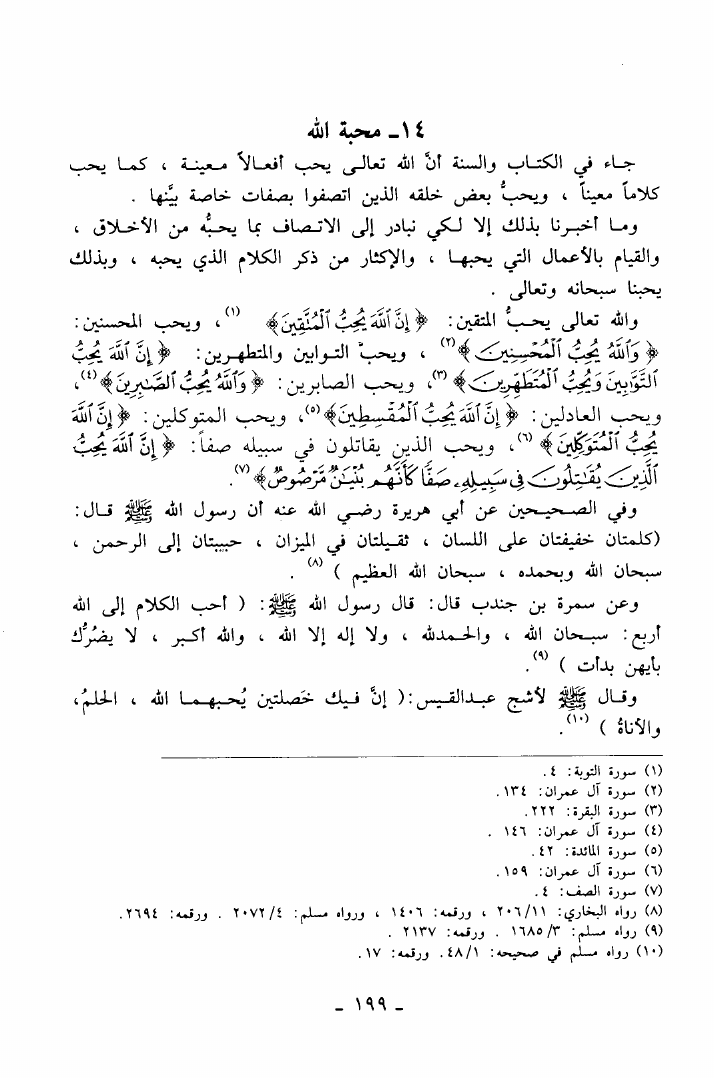 ١٤ـ محبة الله
جاء في الكتاب والسنة أنَّ الله تعالى يحب أفعالاً معينة ، كما يحب
كلاماً معيناً ، ويحبُّ بعض خلقه الذين اتصفوا بصفات خاصة بيَّنها .
وما أخبرنا بذلك إلا لكي نبادر إلى الاتصاف بما يحبُّه من الأخلاق ،
والقيام بالأعمال التي يحبها ، والإكثار من ذكر الكلام الذي يحبه ، وبذلك
يحبنا سبحانه وتعالى .
والله تعالى يحبُّ المتقين: ﴿ إِنَّ ٱللَّهَ يُحِبُّ ٱلْمُتَّقِينَ﴾ (١)، ويحب المحسنين:
﴿ وَٱللَّهُ يُحِبُّ ٱلْمُحْسِنِينَ ﴾(٢) ، ويحب التوابين والمتطهرين: ﴿ إِنَّ ٱللَّهَ يُحِبُّ
ٱلتَّوَّٰبِينَ وَيُحِبُّ ٱلْمُتَطَهِّرِينَ ﴾(٣)، ويحب الصابرين: ﴿ وَٱللَّهُ يُحِبُّ ٱلصَّٰبِرِينَ ﴾(٤)،
ويحب العادلين: ﴿ إِنَّ ٱللَّهَ يُحِبُّ ٱلْمُقْسِطِينَ﴾(٥)، ويحب المتوكلين: ﴿ إِنَّ ٱللَّهَ
يُحِبُّ ٱلْمُتَوَكِّلِينَ ﴾(٦)، ويحب الذين يقاتلون في سبيله صفاً: ﴿ إِنَّ ٱللَّهَ يُحِبُّ
ٱلَّذِينَ يُقَٰتِلُونَ فِي سَبِيلِهِۦ صَفًّا كَأَنَّهُم بُنْيَٰنٌ مَّرْصُوصٌ ﴾(٧).
وفي الصحيحين عن أبي هريرة رضي الله عنه أن رسول الله ﷺ قال:
(كلمتان خفيفتان على اللسان ، ثقيلتان في الميزان ، حبيبتان إلى الرحمن ،
سبحان الله وبحمده ، سبحان الله العظيم ) (٨) .
وعن سمرة بن جندب قال: قال رسول الله ﷺ: ( أحب الكلام إلى الله
أربع: سبحان الله ، والحمدلله ، ولا إله إلا الله ، والله أكبر ، لا يضرُّك
بأيهن بدأت ) (٩).
وقال ﷺ لأشج عبدالقيس:( إنَّ فيك خَصلتين يُحبهما الله ، الحلمُ،
والأناةُ ) (١٠).
(١) سورة التوبة: ٤.
(٢) سورة آل عمران: ١٣٤.
(٣) سورة البقرة: ٢٢٢.
(٤) سورة آل عمران: ١٤٦ .
(٥) سورة المائدة: ٤٢.
(٦) سورة آل عمران: ١٥٩.
(٧) سورة الصف: ٤.
(٨) رواه البخاري: ٢٠٦/١١ ، ورقمه: ١٤٠٦ ، ورواه مسلم: ٢٠٧٢/٤ . ورقمه: ٢٦٩٤.
(٩) رواه مسلم: ١٦٨٥/٣ . ورقمه: ٢١٣٧ .
(١٠) رواه مسلم في صحيحه: ٤٨/١. ورقمه: ١٧.
ـ ١٩٩ ـ